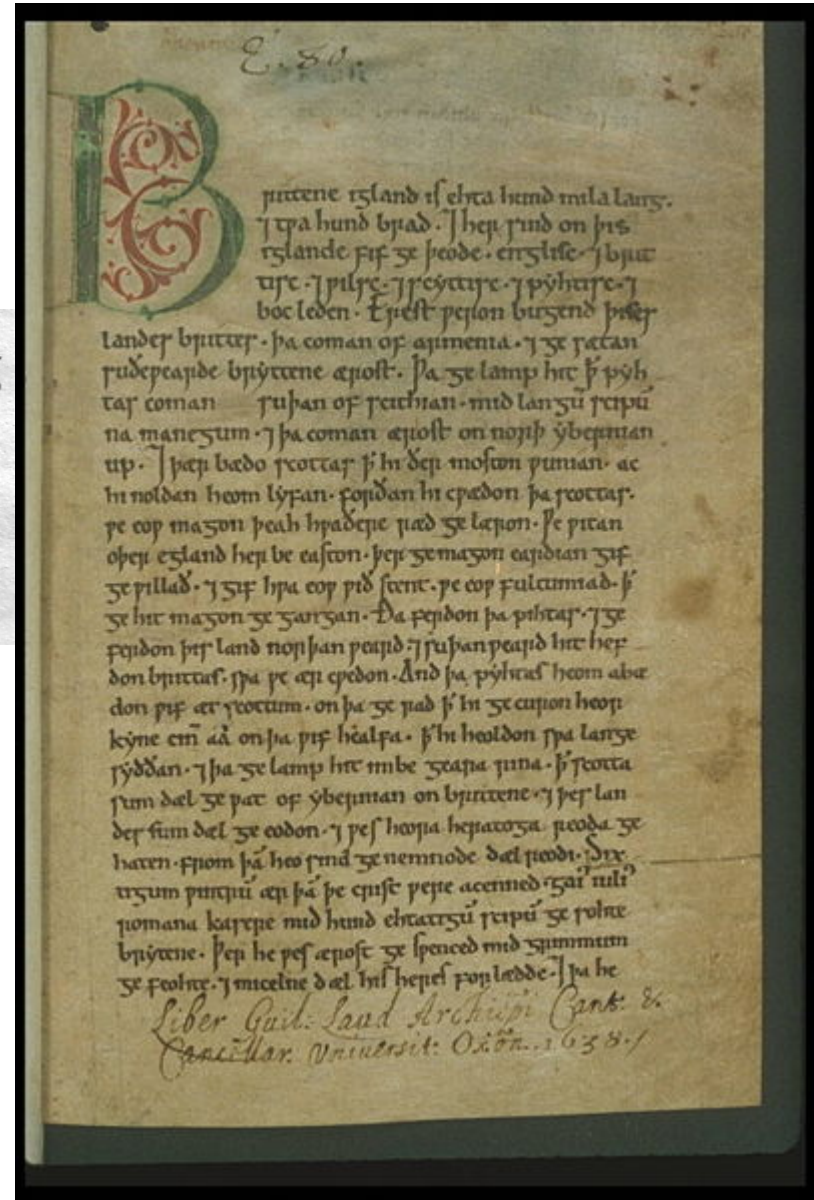 E. 80.
Brittene igland is ehta hund mila lang.
⁊ tƿa hund brad. ⁊ her sind on þis
iglande fif ge þeode. englisc. ⁊ brit
tisc. ⁊ ƿilsc. ⁊ scyttisc. ⁊ pyhtisc. ⁊
boc leden. Erest ƿeron bugend þises
landes brittes. þa coman of armenia. ⁊ ge sætan
suðeƿearde bryttene ærost. Þa ge lamp hit ꝥ pyh
tas coman suþan of scithian. mid langū scipū
na manegum. ⁊ þa coman ærost on norþ ybernian
up. ⁊ þær bædo scottas ꝥ hi ðer moston ƿunian. ac
hi noldan heom lyfan. forðan hi cƿædon þa scottas.
ƿe eoƿ magon þeah hƿaðere ræd ge læron. Ƿe ƿitan
oþer egland her be easton. þer ge magon eardian gif
ge ƿillað. ⁊ gif hƿa eoƿ ƿið stent. ƿe eoƿ fultumiad. ꝥ
ge hit magon ge gangan. Ða ferdon þa pihtas. ⁊ ge
ferdon þis land norþan ƿeard. ⁊ suþanƿeard hit hef
don brittas. sƿa ƿe ær cƿedon. And þa pyhtas heom abæ
don ƿif æt scottum. on þa ge rad ꝥ hi ge curon heor
kyne cīn aa on þa ƿif healfa. ꝥ hi heoldon sƿa lange
syððan. ⁊ þa ge lamp hit imbe geara rina. ꝥ scotta
sum dæl ge ƿat of ybernian on brittene. ⁊ þes lan
des sum dæl ge eodon. ⁊ ƿes heora heratoga reoda ge
haten. from þā heo sind ge nemnode dæl reodi. Six
tigum ƿintrū ær þā þe crist ƿere acenned. gai' iuli'
romana kasere mid hund ehtatigū scipū ge sohte
brytene. Þer he ƿes ærost ge sƿenced mid grimmum
ge feohte. ⁊ micelne dæl his heres for lædde. ⁊ þa he
Liber Guil: Laud Archiēpi Cant: &
Cancillar. Universit: Oxōn. 1638./